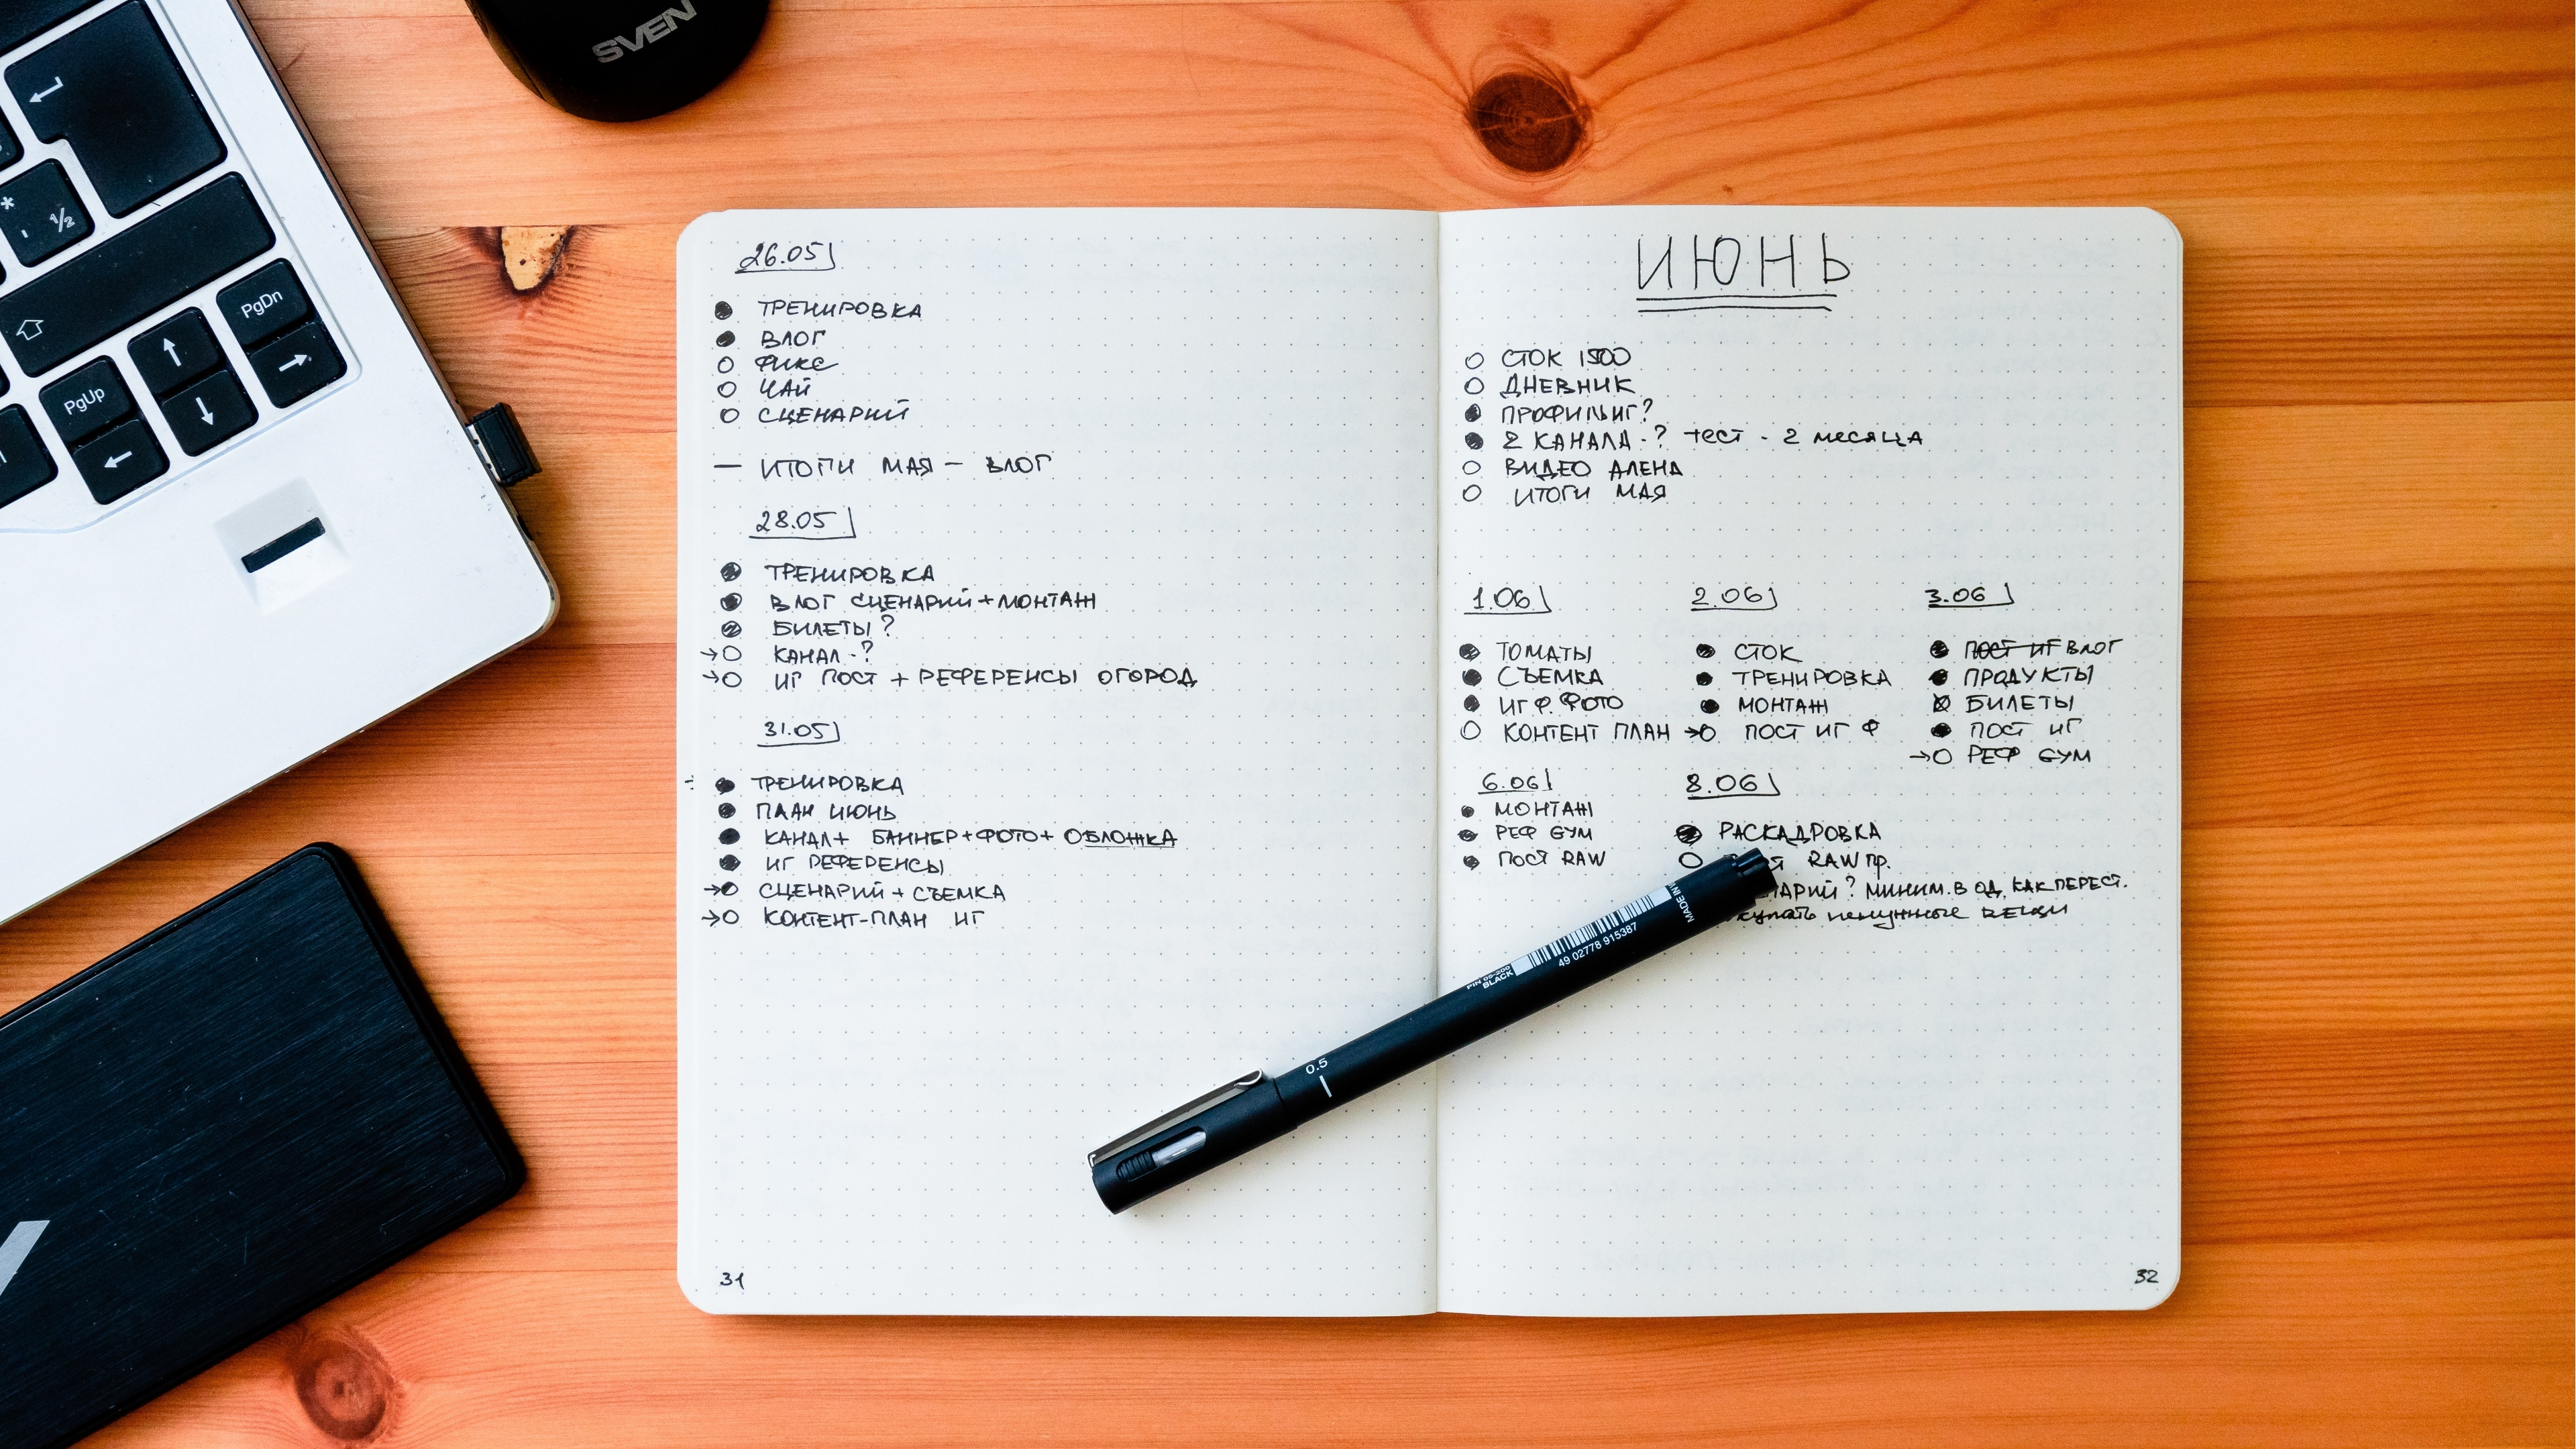 SVEN
*
' ½
PgDn
PgUp
26.05
ТРЕНИРОВКА
ВЛОГ
ФИКС
ЧАЙ
СЦЕНАРИЙ
— ИТОГИ МАЯ — ВЛОГ
28.05
ТРЕНИРОВКА
ВЛОГ СЦЕНАРИЙ+МОНТАЖ
БИЛЕТЫ?
→ КАНАЛ-?
→ ИГ ПОСТ + РЕФЕРЕНСЫ ОГОРОД
31.05
ТРЕНИРОВКА
ПЛАН ИЮНЬ
КАНАЛ+ БАННЕР+ФОТО+ ОБЛОЖКА
ИГ РЕФЕРЕНСЫ
→ СЦЕНАРИЙ + СЪЕМКА
→ КОНТЕНТ-ПЛАН ИГ
31
ИЮНЬ
СТОК 1500
ДНЕВНИК
ПРОФИЛЬ ИГ?
2 КАНАЛА-? тест - 2 месяца
ВИДЕО АЛЕНА
ИТОГИ МАЯ
1.06
ТОМАТЫ
СЪЕМКА
ИГ Ф. ФОТО
КОНТЕНТ ПЛАН
2.06
СТОК
ТРЕНИРОВКА
МОНТАЖ
→ ПОСТ ИГ Ф
3.06
ПОСТ ИГ ВЛОГ
ПРОДУКТЫ
БИЛЕТЫ
ПОСТ ИГ
→ РЕФ GYM
6.06
МОНТАЖ
РЕФ GYM
ПОСТ RAW
8.06
РАСКАДРОВКА
RAW пр.
МИНИМ. В ОД. КАК ПЕРЕСТ.
ненужные вещи
MADE IN
49 02778 915387
PIN 05-200
BLACK
0.5
32